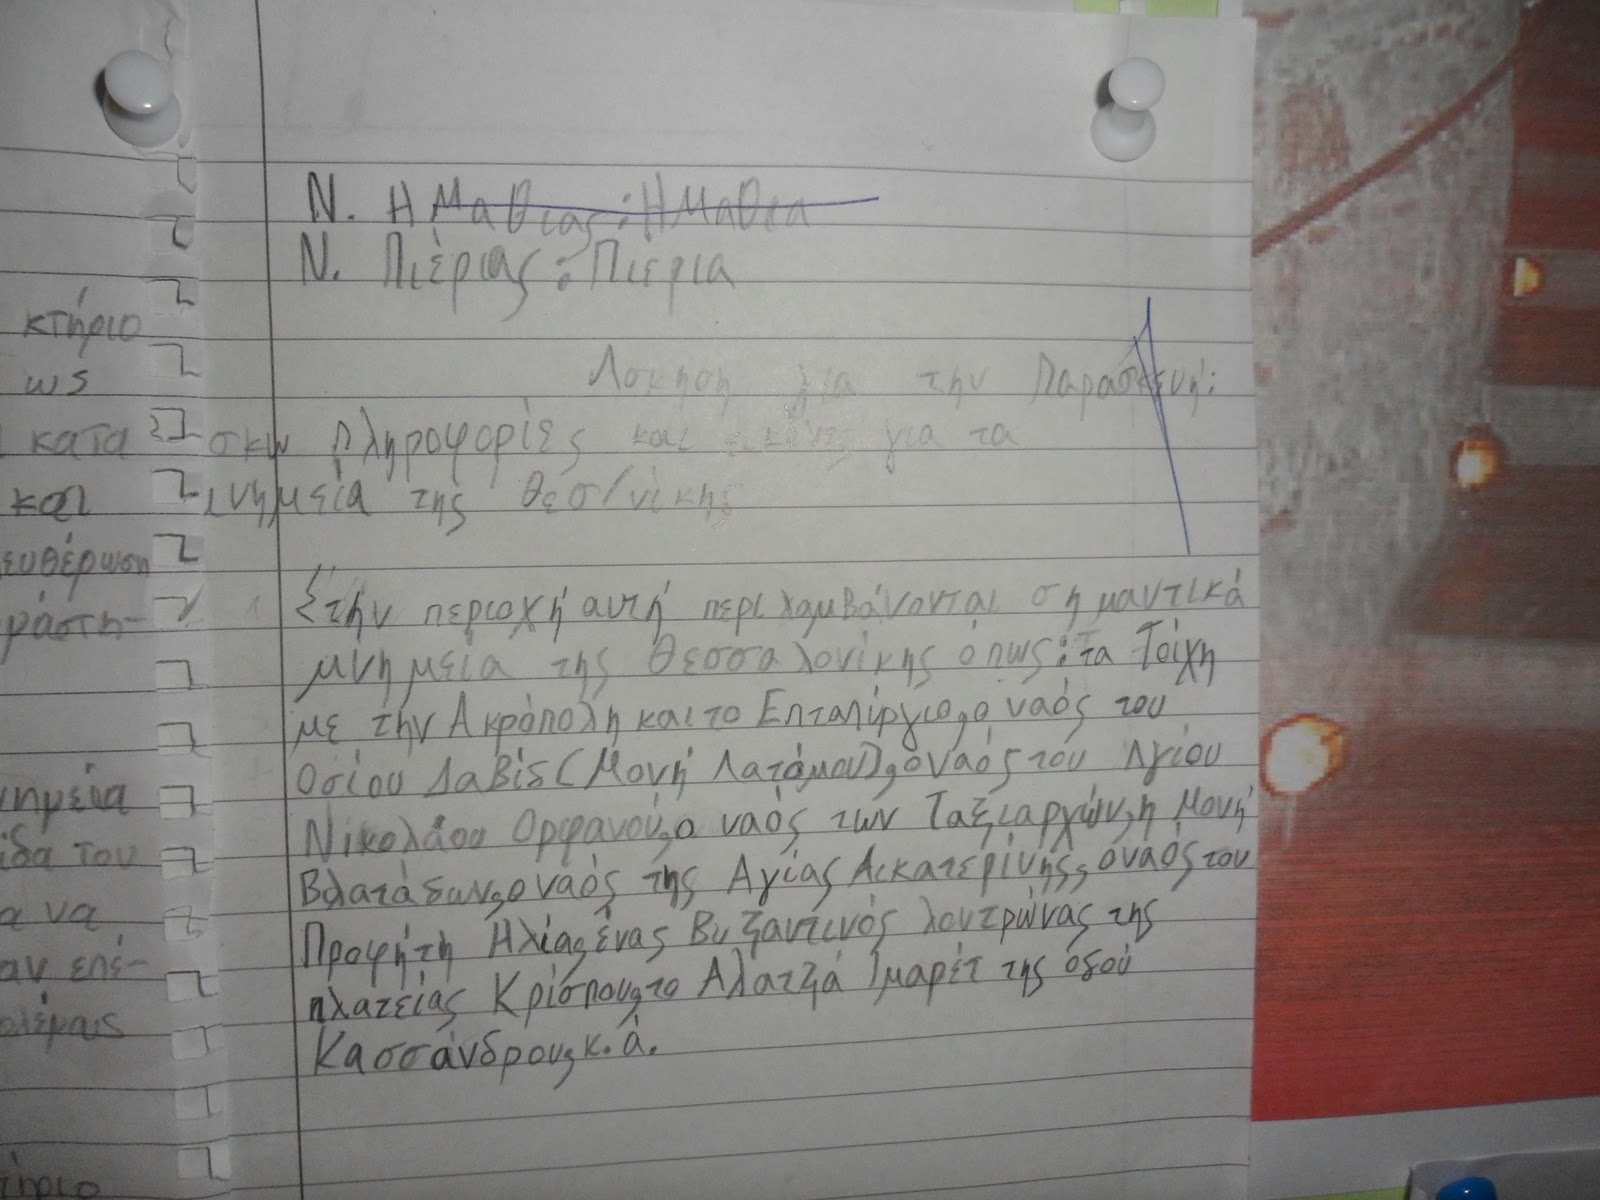 Ν. Ημαθιας: Ημαθια
Ν. Πιέριας: Πιέρια
κτήριο
ως
Ασκηση για την Παρασκευή:
κατα
πληροφορίες και εικόνες για τα
και
μνημεία της Θεσ/νίκης
ευθέρωση
ράστη-
Στήν περιοχή αυτή περιλαμβάνονται σημαντικά
μνημεία της Θεσσαλονίκης όπως: τα Τείχη
με την Ακρόπολη και το Επταπύργιο, ο ναός του
Οσίου Δαβίδ (Μονή Λατόμου), ο ναός του Αγίου
Νικολάου Ορφανού, ο ναός των Ταξιαρχών, η Μονή
Βλατάδων, ο ναός της Αγίας Αικατερίνης, ο ναός του
Προφήτη Ηλία, ένας Βυζαντινός λουτρώνας της
πλατείας Κρίσπου, το Αλατζά Ιμαρέτ της οδού
Κασσάνδρου, κ. ά.
νημεία
ίδα του
α να
αν επέ-
τήριο